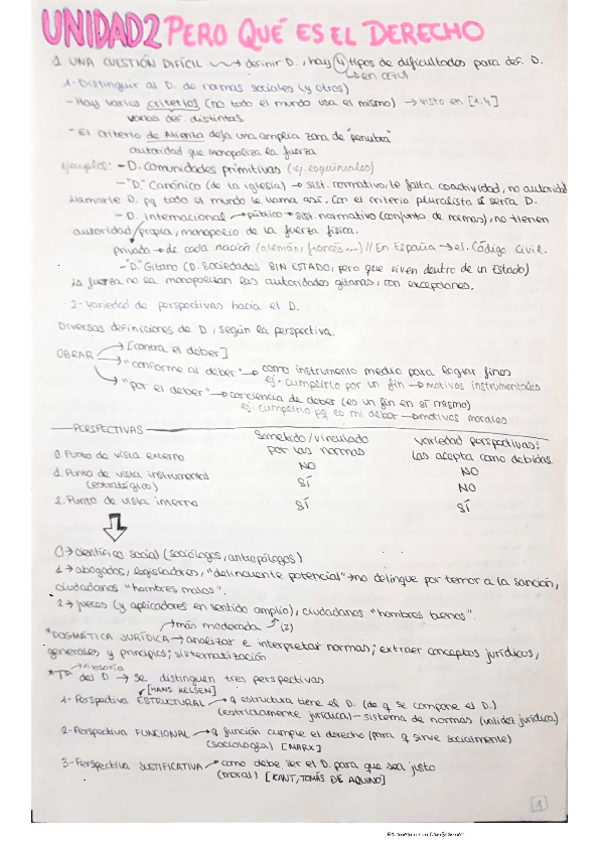 UNIDAD 2 PERO QUÉ ES EL DERECHO
1 UNA CUESTIÓN DIFÍCIL → definir D., hay 4 tipos de dificultades para def. D.
→ en azul
1- Distinguir al D. de normas sociales (y otros)
- Hay varios criterios (no todo el mundo usa el mismo) → visto en [1.4]
varias def. distintas
- El criterio de Atienza deja una amplia zona de "penumbra"
autoridad que monopoliza la fuerza
Ejemplos: - D. comunidades primitivas (ej. esquimales)
- "D." Canónico (de la iglesia) → sist. normativo, le falta coactividad, no autoridad
llamarle D. pq todo el mundo le llama así. Con el criterio pluralista sí sería D.
- D. Internacional → público → sist. normativo (conjunto de normas), no tienen
autoridad propia, monopolio de la fuerza física.
privado → de cada nación (alemán, francés...) // En España → el Código Civil.
- "D." Gitano (D. Sociedades SIN ESTADO, pero que viven dentro de un Estado)
La fuerza no la monopolizan las autoridades gitanas, con excepciones.
2- Variedad de perspectivas hacia el D.
Diversas definiciones de D, según la perspectiva.
OBRAR → [contra el deber]
→ "conforme al deber" → como instrumento medio para lograr fines
ej. cumplirlo por un fin → motivos instrumentales
→ "por el deber" → conciencia de deber (es un fin en sí mismo)
ej. cumplirlo pq es mi deber → motivos morales
PERSPECTIVAS Sometido/vinculado por las normas Variedad perspectivas: las acepta como debidas
0. Punto de vista externo NO NO
1. Punto de vista instrumental (estratégico) SÍ NO
2. Punto de vista interno SÍ SÍ
0 → científico social (sociólogos, antropólogos)
1 → abogados, legisladores, "delincuente potencial" → no delinque por temor a la sanción,
ciudadanos "hombres malos".
2 → jueces (y aplicadores en sentido amplio), ciudadanos "hombres buenos".
→ más moderada (2)
*DOGMÁTICA JURÍDICA → analizar e interpretar normas; extraer conceptos jurídicos,
generales y principios; sistematización
→ filosofía
*Tª del D → se distinguen tres perspectivas
[HANS KELSEN]
1- Perspectiva ESTRUCTURAL → q estructura tiene el D. (de q se compone el D.)
(estrictamente jurídica) - sistema de normas (validez jurídica)
2- Perspectiva FUNCIONAL → q función cumple el derecho (para q sirve socialmente)
(sociología) [MARX]
3- Perspectiva JUSTIFICATIVA → como debe ser el D. para que sea justo
(moral) [KANT, TOMÁS DE AQUINO]
1